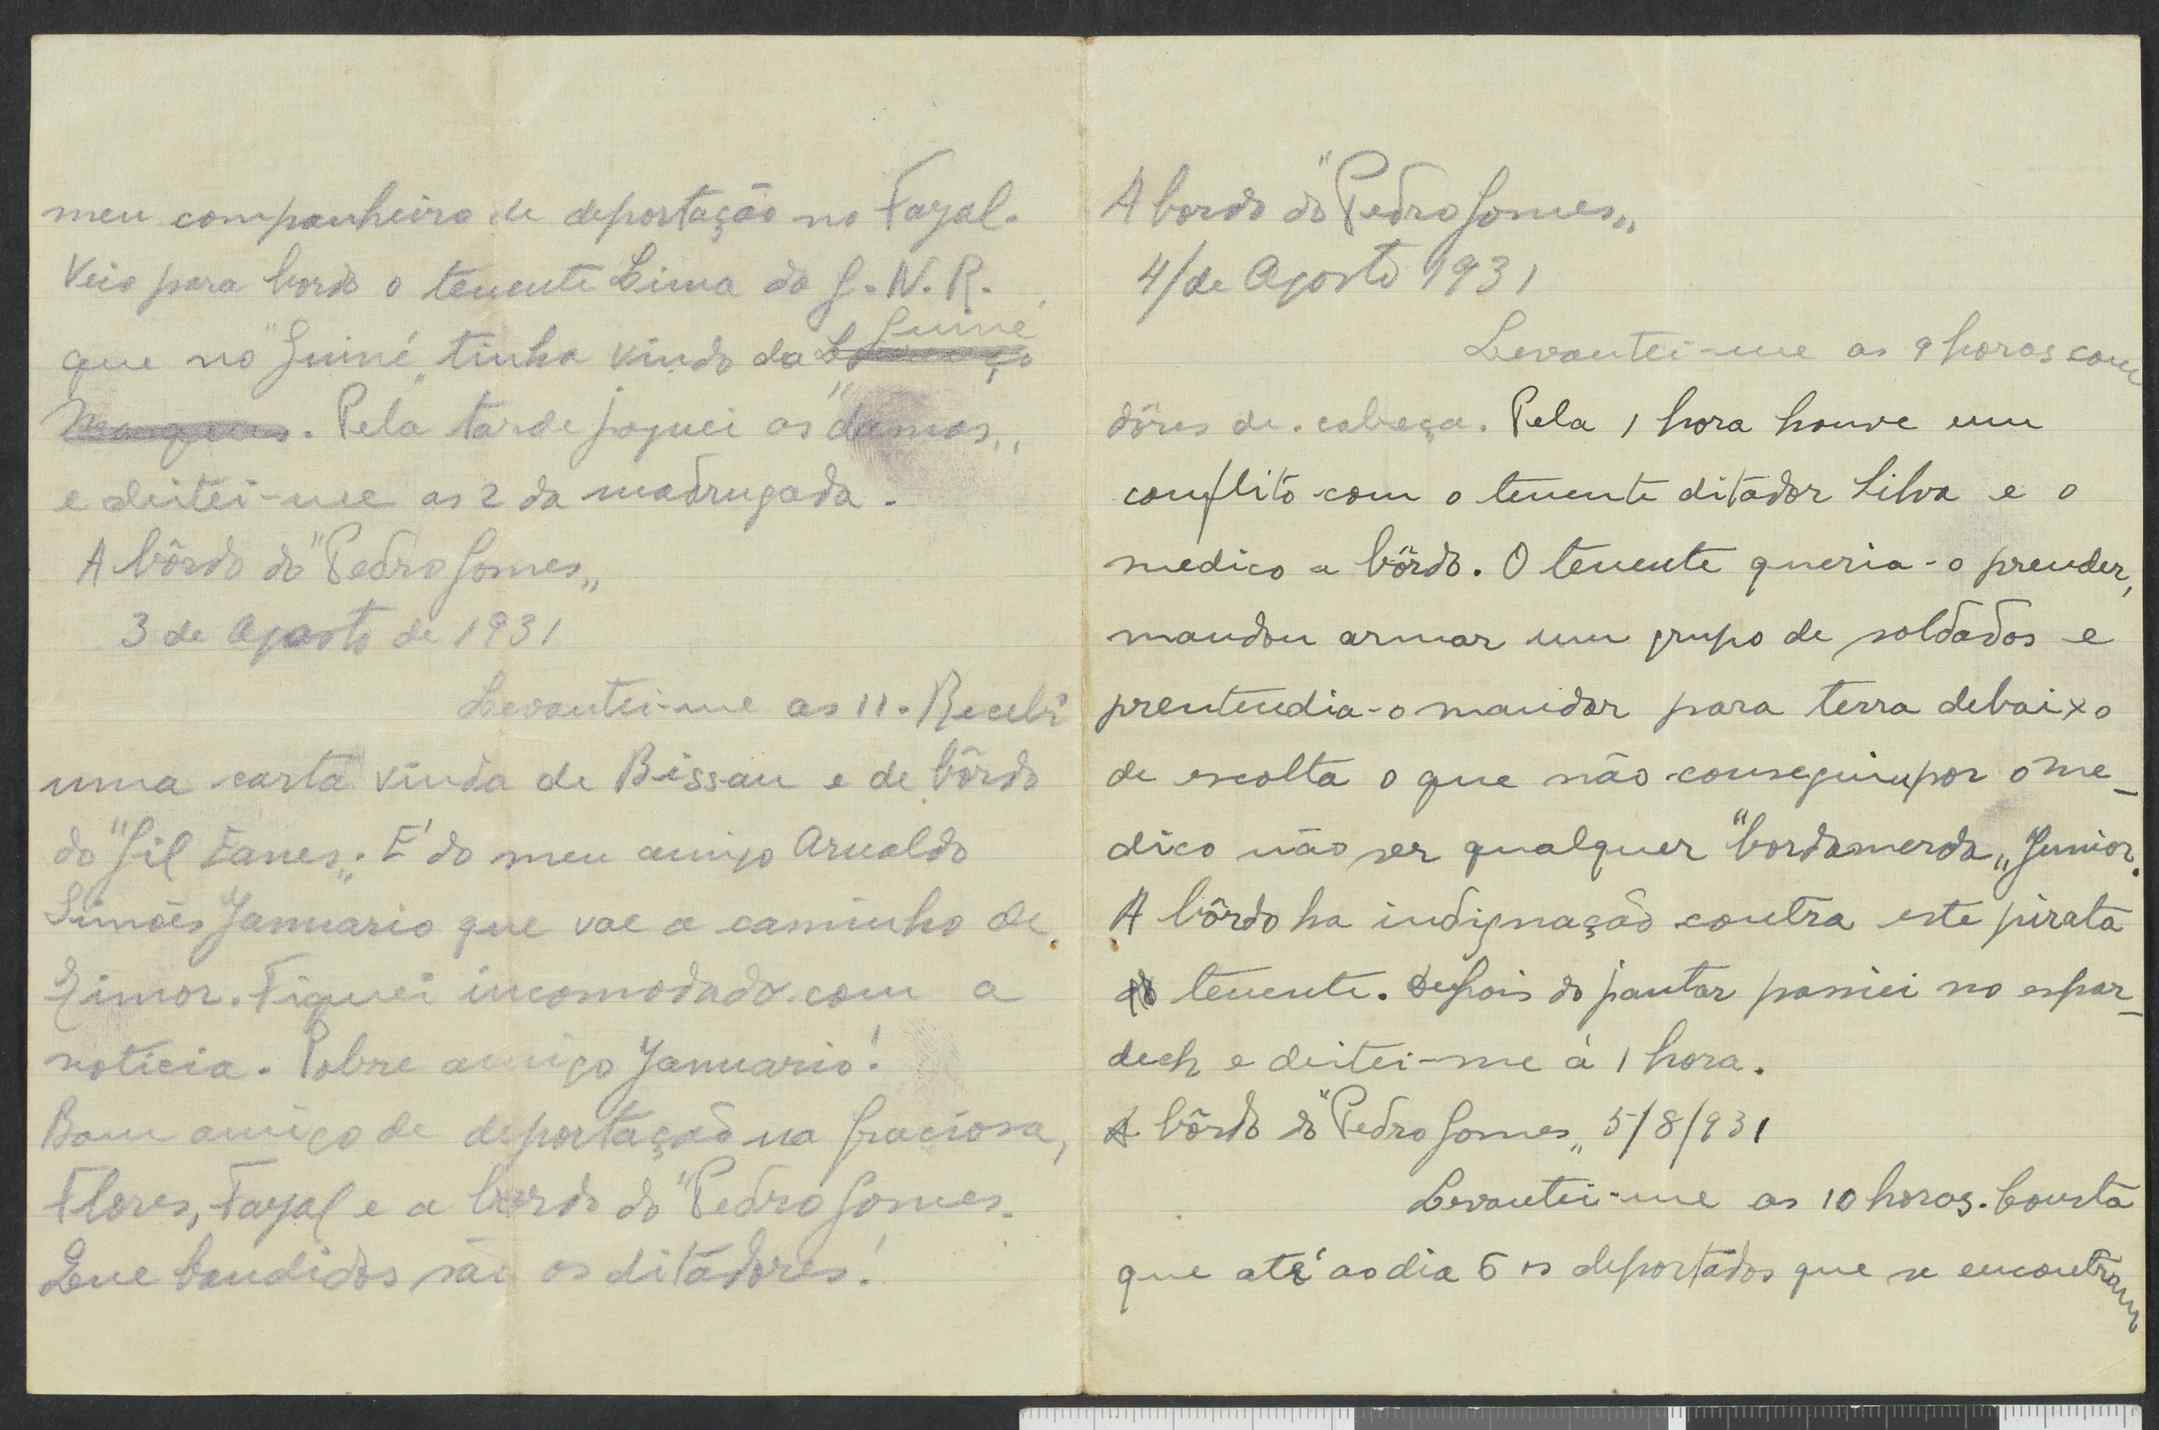 meu companheiro de deportação no Fayal.
Veio para bordo o tenente Lima da G. N. R.
que no "Guiné„ tinha vindo da Guiné
. Pela tarde joguei as "damas„
e deitei-me as 2 da madrugada.
A bôrdo do "Pedro Gomes„
3 de Agosto de 1931
Levantei-me as 11. Recebi
uma carta vinda de Bissau e de bôrdo
do "Gil Eanes„. E' do meu amigo Arnaldo
Simões Januario que vae a caminho de
Timor. Fiquei incomodado com a
noticia. Pobre amigo Januario!
Bom amigo de deportação na Graciosa,
Flores, Fayal e a bordo do "Pedro Gomes.
Que bandidos são os ditadores!
A bordo do "Pedro Gomes„
4/de Agosto 1931
Levantei-me as 9 horas com
dôres de cabeça. Pela 1 hora houve um
conflito com o tenente ditador Silva e o
medico a bôrdo. O tenente queria-o prender,
mandou armar um grupo de soldados e
prentendia-o mandar para terra debaixo
de escolta o que não conseguiu por o me_
dico não ser qualquer "bordamerda„ Junior.
A bôrdo ha indignação contra este pirata
do tenente. Depois do jantar passiei no espar_
dech e deitei-me á 1 hora.
A bôrdo do "Pedro Gomes„ 5/8/931
Levantei-me as 10 horas. Consta
que até ao dia 6 os deportados que se encontram